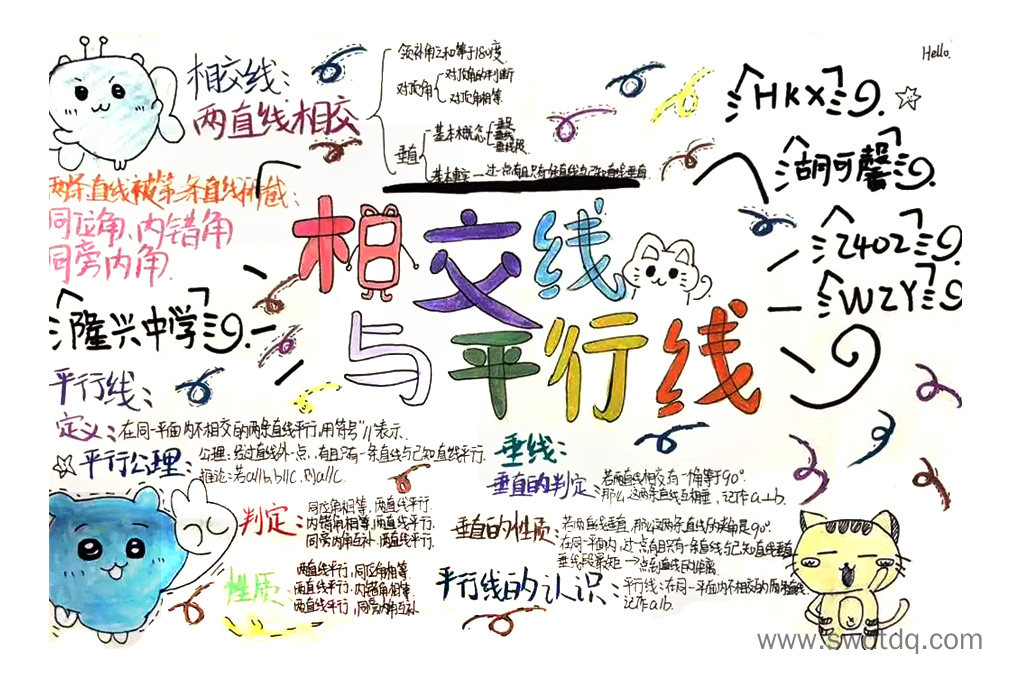 Hello.
相交线：
两直线相交
领补角之和等于180度
对顶角
对顶角的判断
对顶角相等
垂直
基本概念
垂足
垂线
垂线段
基本事实—过一点有且只有一条直线与已知直线垂直
HKX
胡可馨
2402
WZY
两条直线被第三条直线所截：
同位角、内错角
同旁内角
相交线
与平行线
隆兴中学
平行线：
定义：在同一平面内不相交的两条直线平行,用符号"//"表示.
平行公理：
公理：经过直线外一点，有且只有一条直线与已知直线平行.
推论:若a//b,b//c,则a//c.
判定：
同位角相等，两直线平行.
内错角相等，两直线平行.
同旁内角互补，两直线平行.
性质：
两直线平行,同位角相等
两直线平行,内错角相等.
两直线平行,同旁内角互补
垂线：
垂直的判定：
若两直线相交有一个角等于90°
那么这两条直线互相垂,记作a⊥b.
垂直的性质：
若两直线垂直,那么这两条直线的夹角是90°.
在同一平面内,过一点有且只有一条直线与已知直线垂直
垂线段最短→点到直线的距离
平行线的认识：
平行线：在同一平面内不相交的两条直线.
记作a//b.
www.swdtdq.com